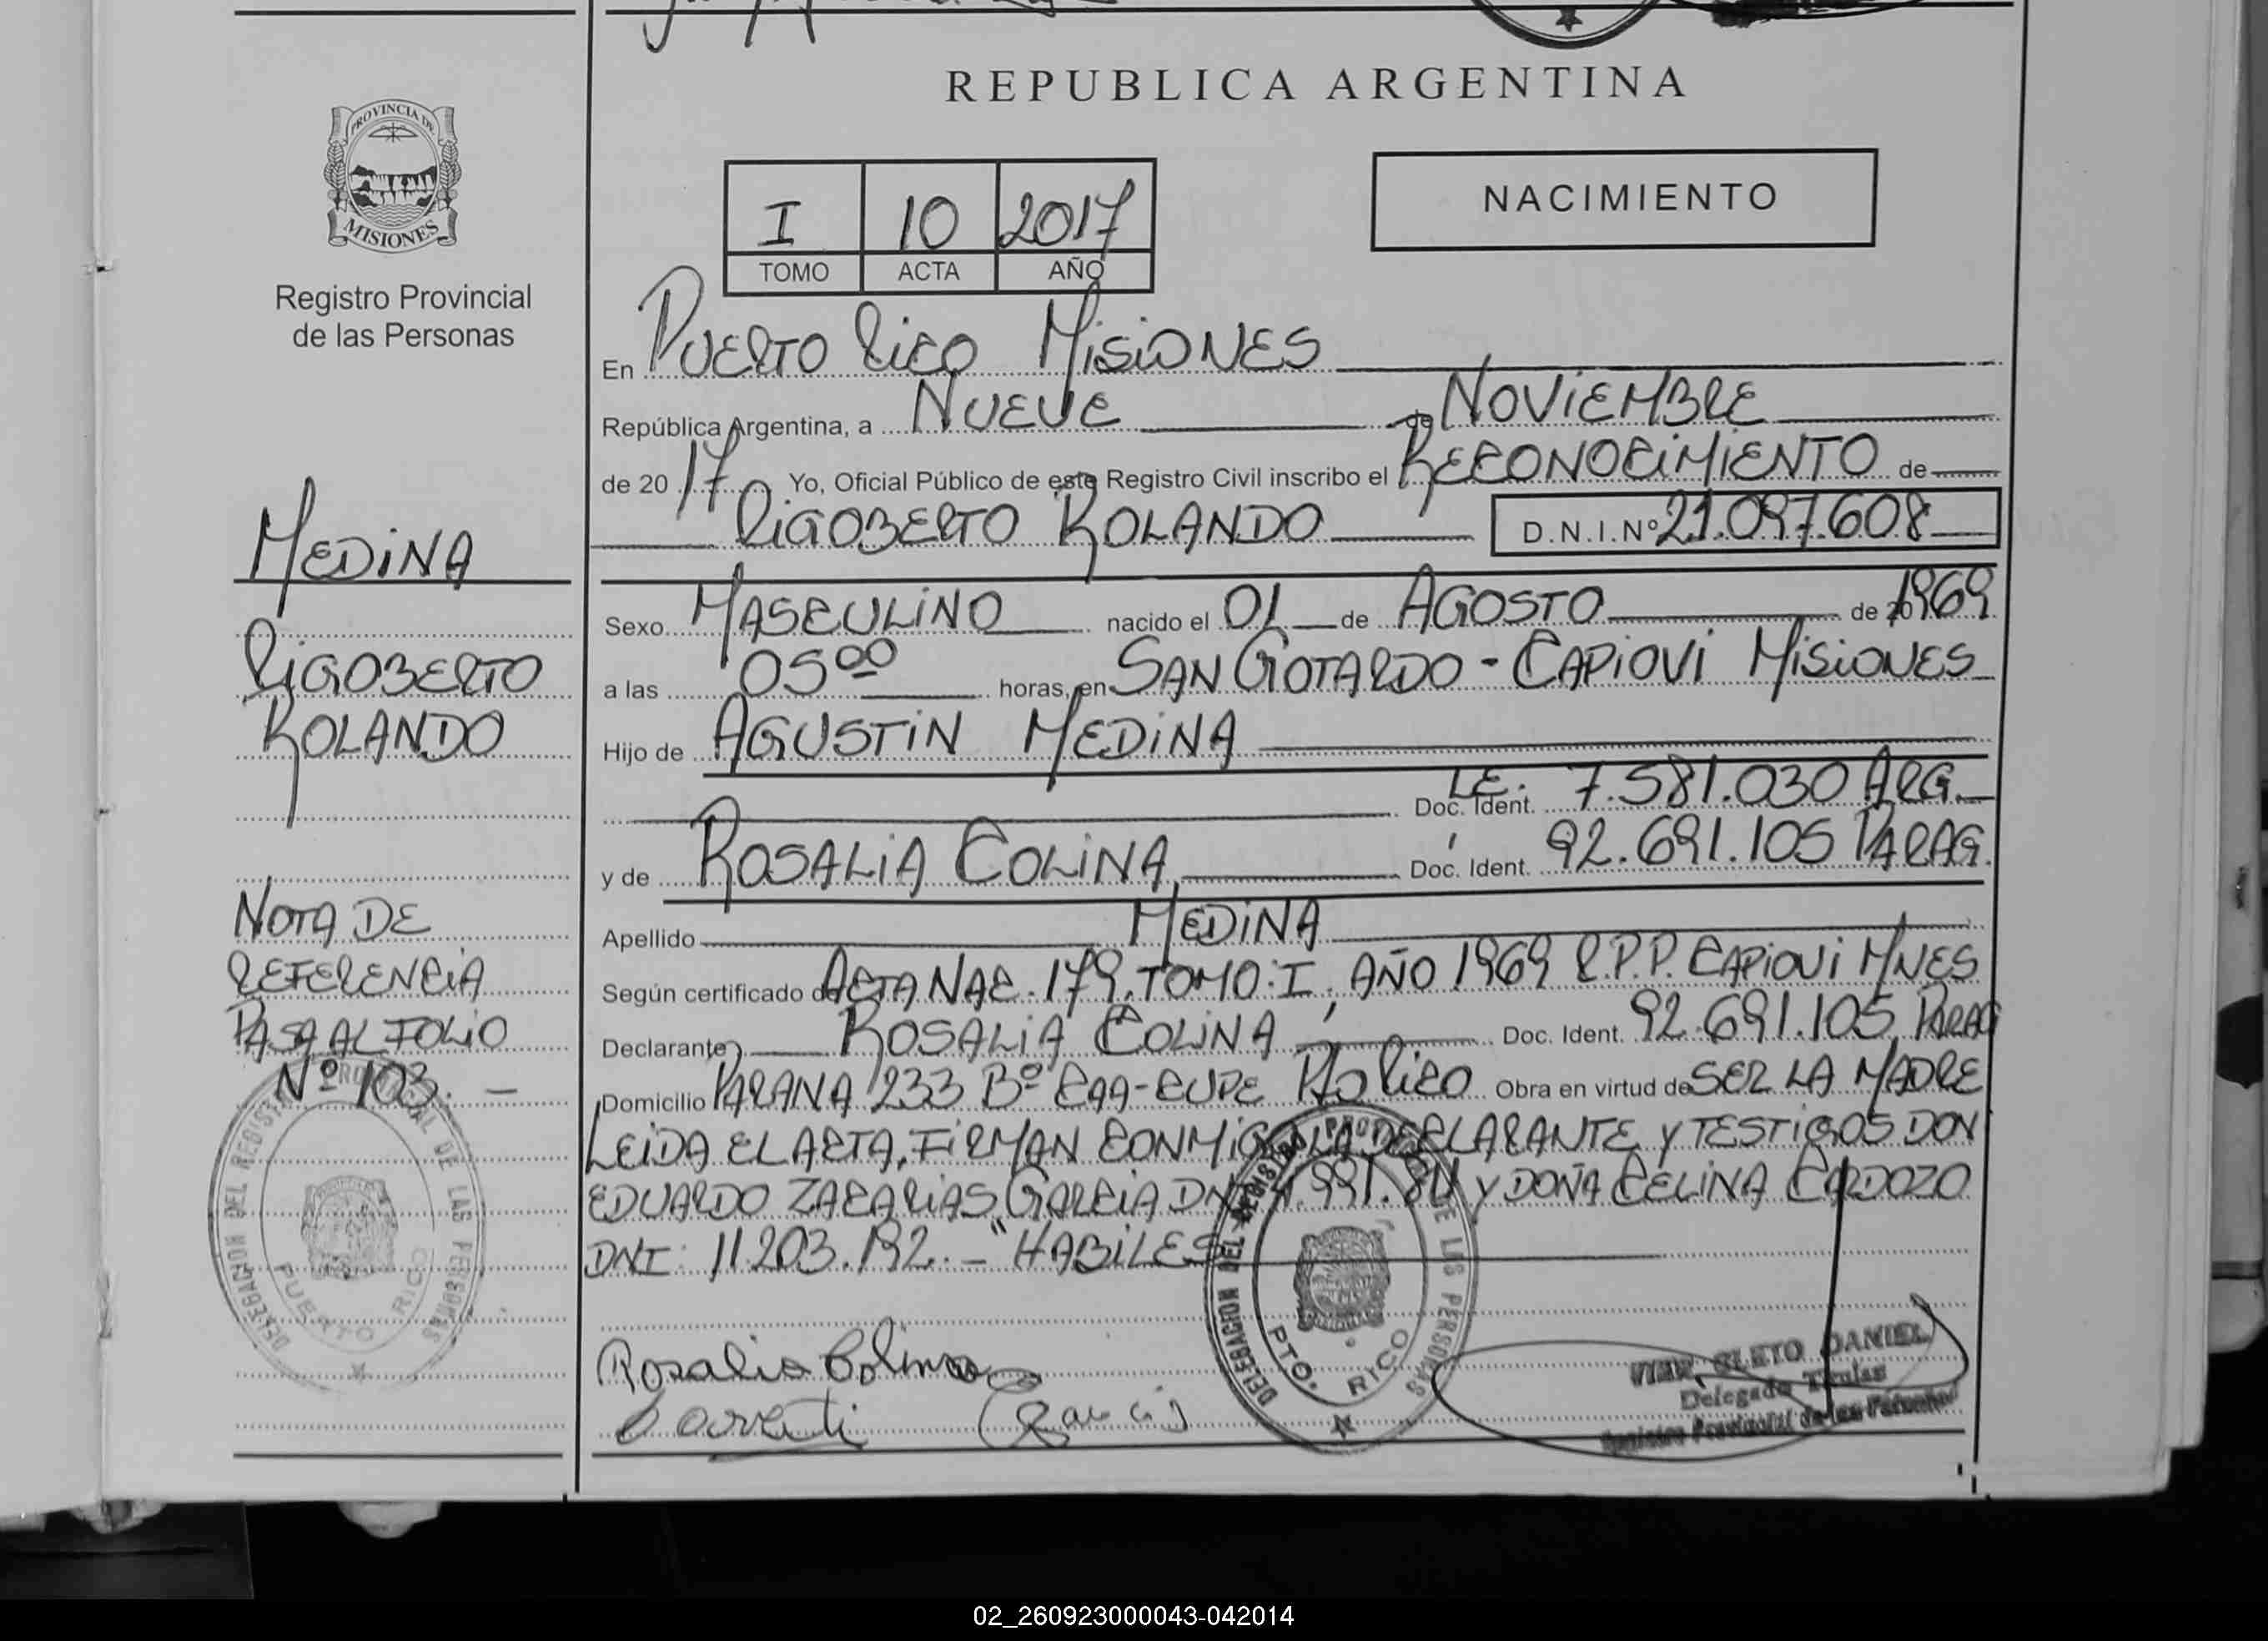 REPUBLICA ARGENTINA
PROVINCIA DE
MISIONES
Registro Provincial
de las Personas
NACIMIENTO
I 10 2017
TOMO ACTA AÑO
En PUERTO RICO MISIONES
República Argentina, a NUEVE de NOVIEMBRE
de 20 17 Yo, Oficial Público de este Registro Civil inscribo el RECONOCIMIENTO de
RIGOBERTO ROLANDO D.N.I.Nº 21.097.608
Sexo MASCULINO nacido el 01 de AGOSTO de 1969
a las 05 00 horas, en SAN GOTARDO - CAPIOVI MISIONES
Hijo de AGUSTIN MEDINA
Doc. Ident. LE. 7.581.030 ARG.
y de ROSALIA COLINA Doc. Ident. 92.691.105 PARAG.
Apellido MEDINA
Según certificado de ACTA NAC. 179, TOMO: I, AÑO 1969 R.P.P. CAPIOVI MNES
Declarante ROSALIA COLINA Doc. Ident. 92.691.105 PARAG
Domicilio PARANA 233 Bº CAA-CUPE Pto RICO Obra en virtud de SER LA MADRE
LEIDA EL ACTA, FIRMAN CONMIGO LA DECLARANTE Y TESTIGOS DON
EDUARDO ZACARIAS GARCIA DNI Y DOÑA CELINA CARDOZO
DNI: 11.203.192. - "HABILES
Rosalia Colina
Garcia
DELEGACION DEL REGISTRO PROVINCIAL DE LAS PERSONAS
PTO. RICO
DANIEL
Delegado Titular
Registro Provincial de las Personas
MEDINA
RIGOBERTO
ROLANDO
NOTA DE
REFERENCIA
PASA AL FOLIO
Nº 103. -
DELEGACION DEL REGISTRO PROVINCIAL DE LAS PERSONAS
PUERTO RICO
02_260923000043-042014